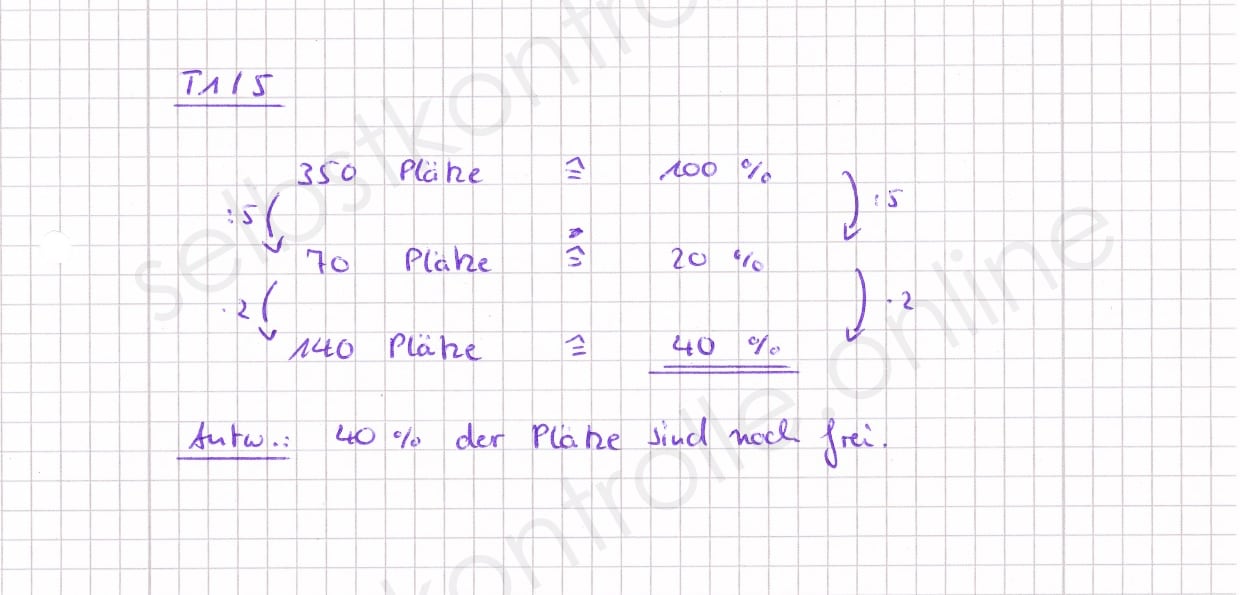 T1/5
350 Plätze ≙ 100 %
:5 :5
70 Plätze ≙ 20 %
·2 ·2
140 Plätze ≙ 40 %
Antw.: 40 % der Plätze sind noch frei.
selbstkontrolle.online